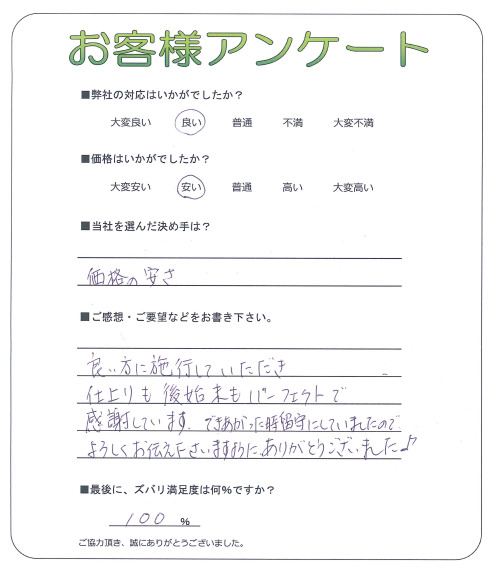 お客様アンケート
■弊社の対応はいかがでしたか？
大変良い 良い 普通 不満 大変不満
■価格はいかがでしたか？
大変安い 安い 普通 高い 大変高い
■当社を選んだ決め手は？
価格の安さ
■ご感想・ご要望などをお書き下さい。
良い方に施行していただき
仕上りも後始末もパーフェクトで
感謝しています．できあがった時留守にしていましたので
よろしくお伝え下さいますように、ありがとうございました♪
■最後に、ズバリ満足度は何%ですか？
100 %
ご協力頂き、誠にありがとうございました。